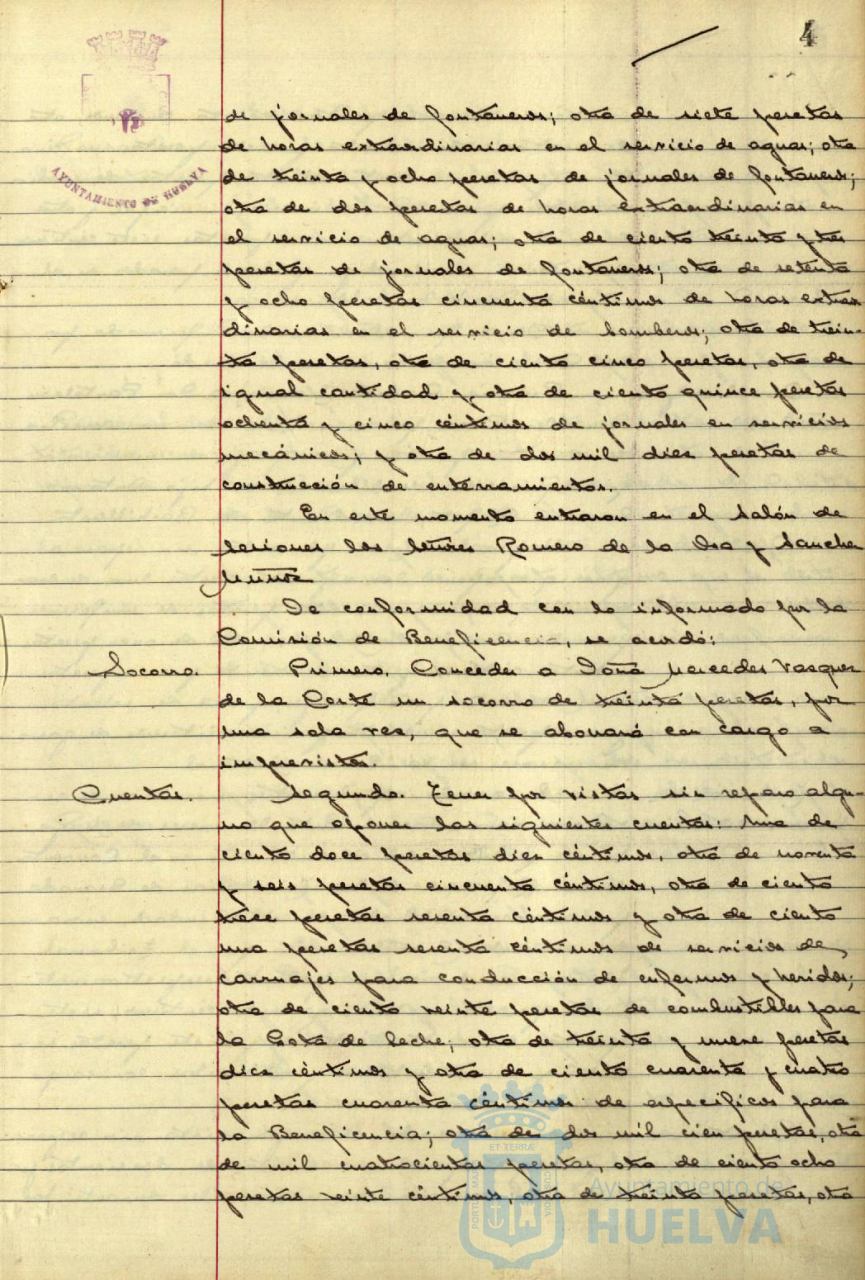 4
AYUNTAMIENTO DE HUELVA
de jornales de fontaneros; otra de siete pesetas
de horas extraordinarias en el servicio de aguas; otra
de treinta y ocho pesetas de jornales de fontaneros;
otra de dos pesetas de horas extraordinarias en
el servicio de aguas; otra de ciento treinta y tres
pesetas de jornales de fontaneros; otra de setenta
y ocho pesetas cincuenta céntimos de horas extraor
dinarias en el servicio de bomberos; otra de trein-
ta pesetas, otra de ciento cinco pesetas, otra de
igual cantidad y, otra de ciento quince pesetas
ochenta y cinco céntimos de jornales en servicios
mecánicos; y otra de dos mil diez pesetas de
construcción de enterramientos.
En este momento entraron en el salón de
sesiones los señores Romero de la Osa y Sanchez
De conformidad con lo informado por la
Comisión de Beneficencia, se acordó:
Socorro.
Primero. Conceder a Doña Mercedes Vazquez
de la Corte un socorro de treinta pesetas, por
una sola vez, que se abonará con cargo a
imprevistos.
Cuentas.
Segundo. Tener por vistas sin reparo algu-
no que oponer las siguientes cuentas: Una de
ciento doce pesetas diez céntimos, otra de noventa
y seis pesetas cincuenta céntimos, otra de ciento
trece pesetas sesenta céntimos y otra de ciento
una pesetas sesenta céntimos de servicios de
carruajes para conducción de enfermos y heridos;
otra de ciento veinte pesetas de combustibles para
la Gota de leche; otra de treinta y nueve pesetas
diez céntimos y otra de ciento cuarenta y cuatro
pesetas cuarenta céntimos de específicos para
la Beneficencia; otra de dos mil cien pesetas, otra
de mil cuatrocientas pesetas, otra de ciento ocho
pesetas veinte céntimos, otra de treinta pesetas, otra
Ayuntamiento de
HUELVA